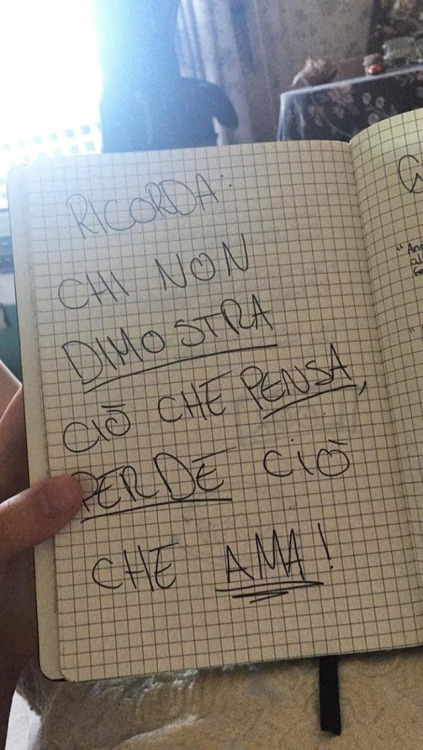 RICORDA:
CHI NON
DIMOSTRA
CIÒ CHE PENSA,
PERDE CIÒ
CHE AMA!